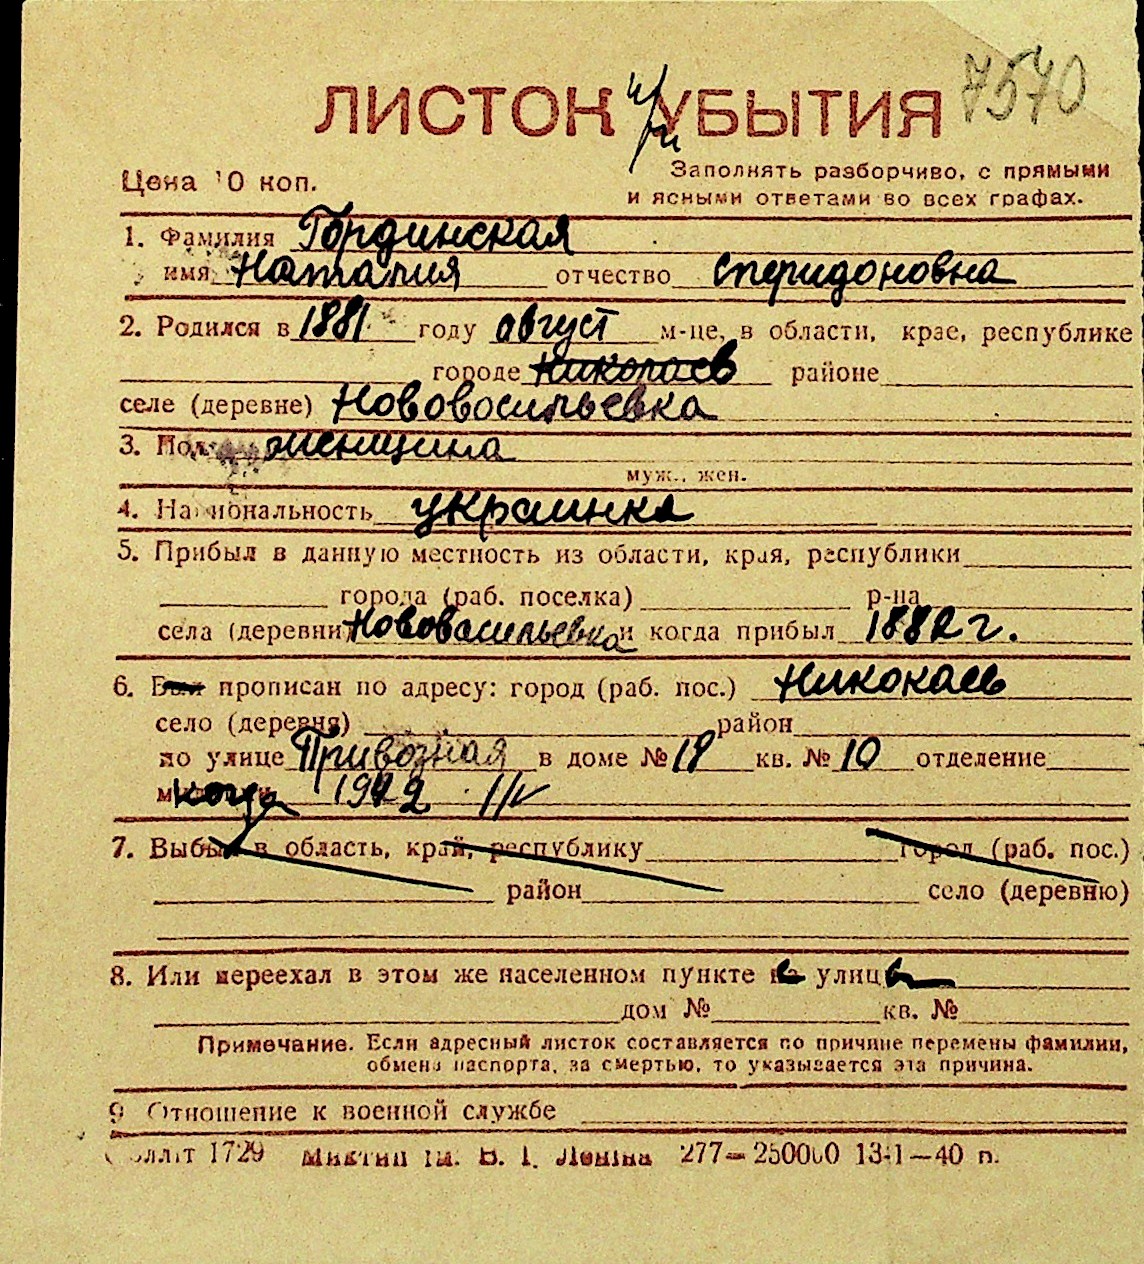 7570
ЛИСТОК УБЫТИЯ
при
Цена 10 коп.
Заполнять разборчиво, с прямыми
и ясными ответами во всех графах.
1. Фамилия Гординская
имя Наталия отчество Спиридоновна
2. Родился в 1881 году август м-це, в области, крае, республике
городе Николаев районе
селе (деревне) Нововосильевка
3. Пол женщина
муж., жен.
4. Национальность украинка
5. Прибыл в данную местность из области, края, республики
города (раб. поселка) р-на
села (деревни) Нововасильевка и когда прибыл 1882 г.
6. Был прописан по адресу: город (раб. пос.) Николаев
село (деревня) район
по улице Привозная в доме № 18 кв. № 10 отделение
когда 1942 /IV
7. Выбыл в область, край, республику город (раб. пос.)
район село (деревню)
8. Или переехал в этом же населенном пункте улиц
дом № кв. №
Примечание. Если адресный листок составляется по причине перемены фамилии,
обмена паспорта, за смертью, то указывается эта причина.
9 Отношение к военной службе
1729 ім. В. І. Леніна 277—250000 13-1—40 п.